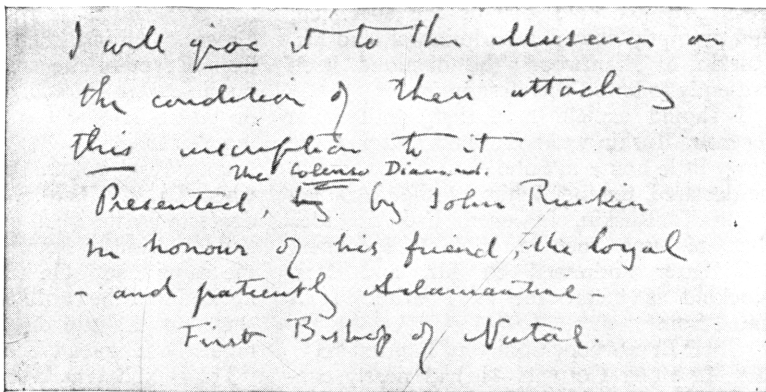 I will give it to the Museum on
the condition of their attaching
this inscription to it
the Colenso Diamond.
Presented, by by John Ruskin
in honour of his friend, the loyal
- and patiently Adamantine
First Bishop of Natal